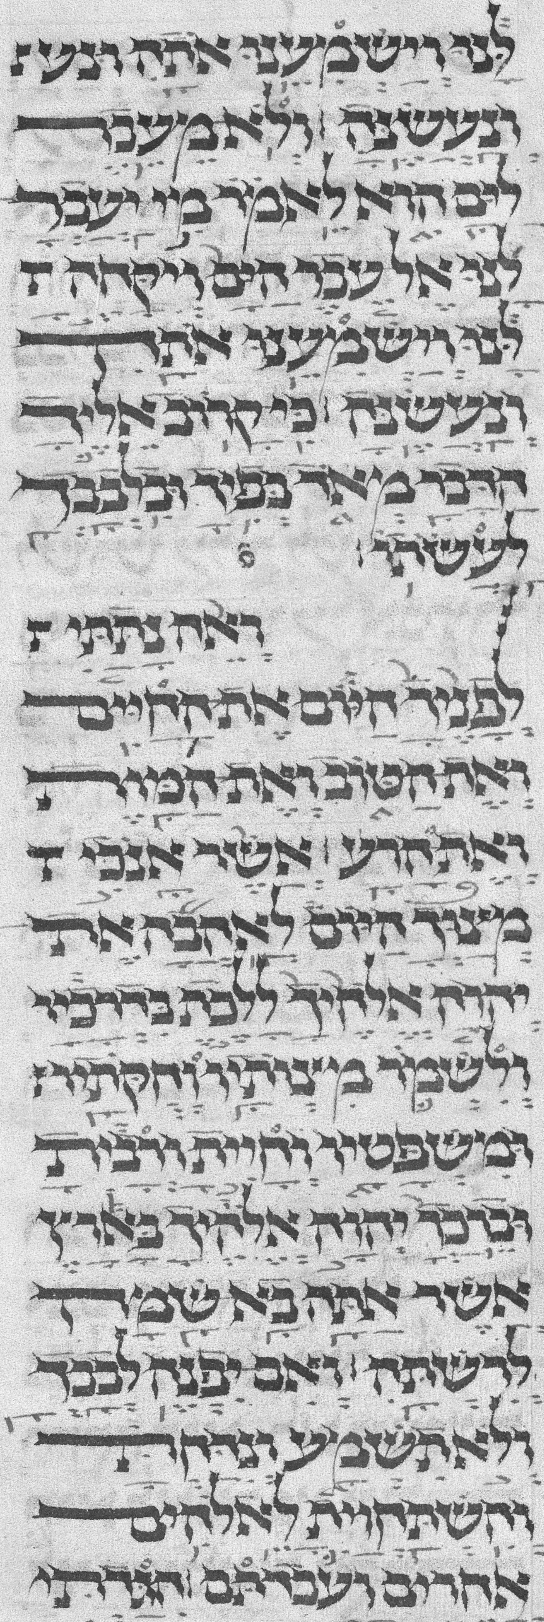 לנו וישמענו אתה ונע
ונעשנה ולא מעבר
לים הוא לאמר מי יעבר
לנו אל עבר הים ויקחה
לנו וישמענו אתה
ונעשנה כי קרוב אליך
הדבר מאד בפיך ובלבבך
לעשתו ס
ראה נתתי
לפניך היום את החיים
ואת הטוב ואת המות
ואת הרע אשר אנכי
מצוך היום לאהבה את
יהוה אלהיך ללכת בדרכיו
ולשמר מצותיו וחקתיו
ומשפטיו וחיית ורבית
וברכך יהוה אלהיך בארץ
אשר אתה בא שמה
לרשתה ואם יפנה לבבך
ולא תשמע ונדחת
והשתחוית לאלהים
אחרים ועבדתם הגדתי